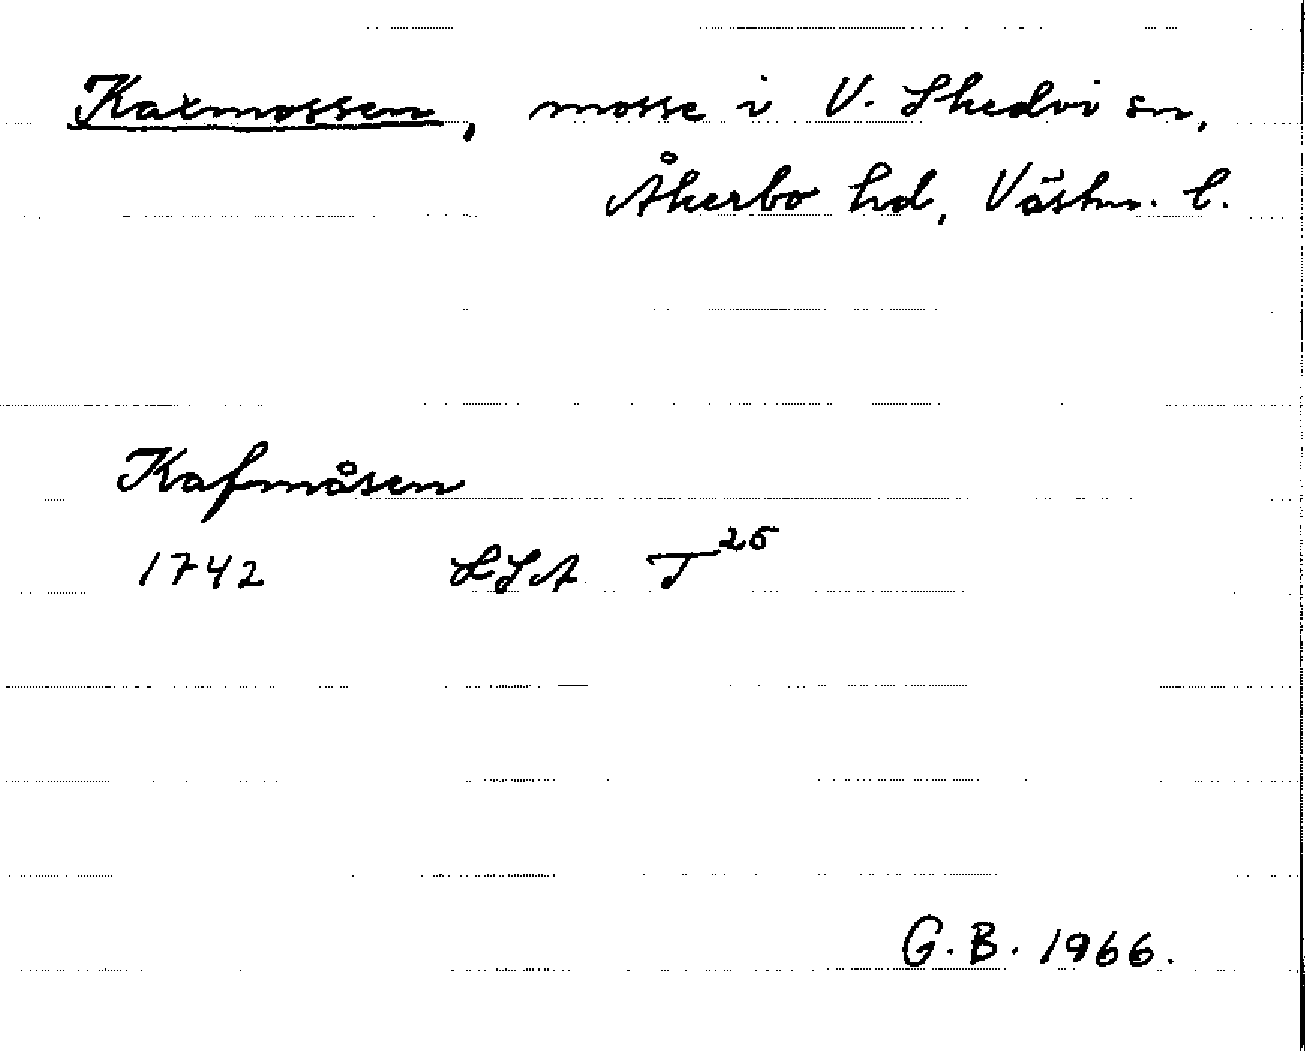 Kaxmossen, mosse i V. Skedvi sn,
Åkerbo hd, Västm. l.
Kafmåsen
1742 LSA T25
G.B. 1966.